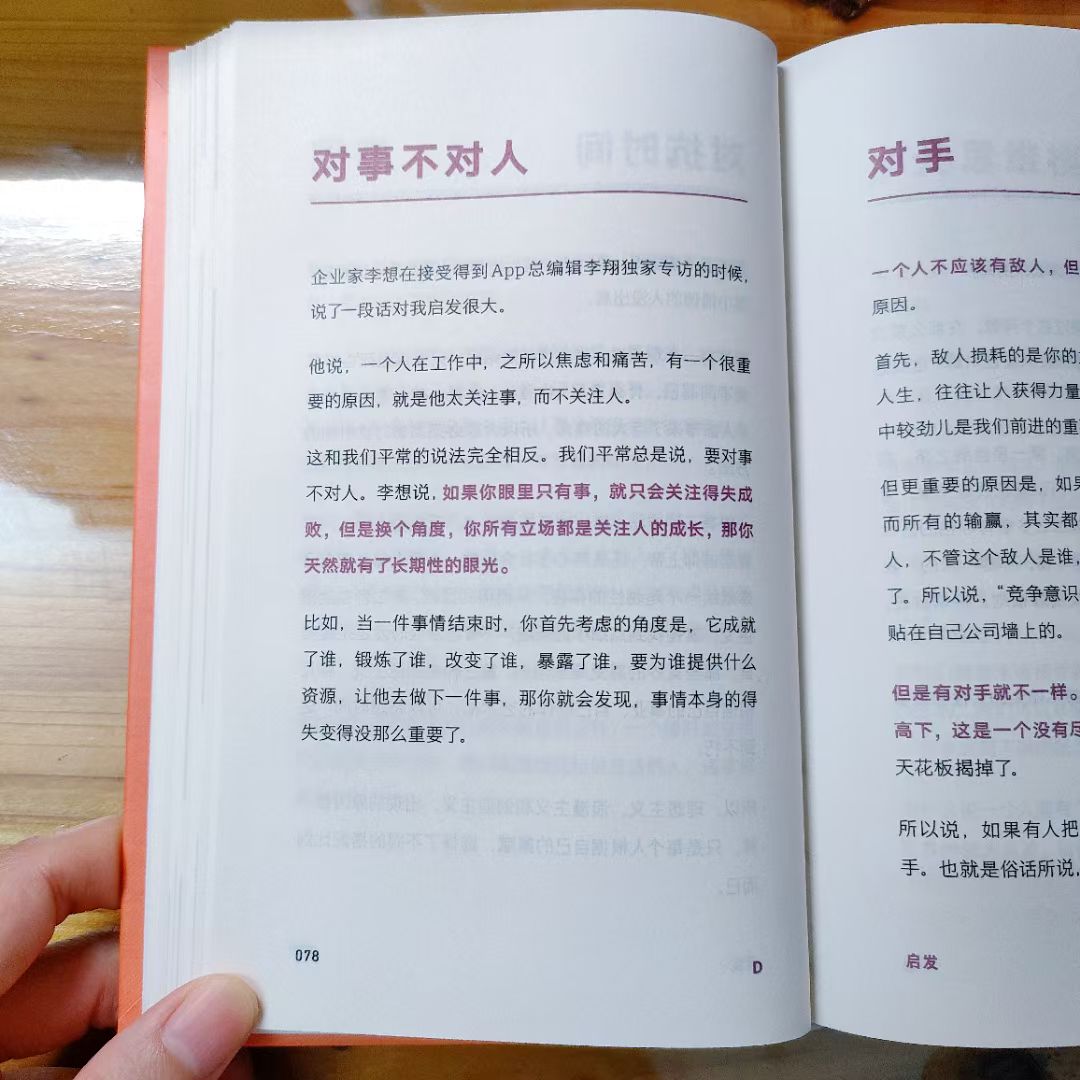 对事不对人
企业家李想在接受得到App总编辑李翔独家专访的时候，
说了一段话对我启发很大。
他说，一个人在工作中，之所以焦虑和痛苦，有一个很重
要的原因，就是他太关注事，而不关注人。
这和我们平常的说法完全相反。我们平常总是说，要对事
不对人。李想说，如果你眼里只有事，就只会关注得失成
败，但是换个角度，你所有立场都是关注人的成长，那你
天然就有了长期性的眼光。
比如，当一件事情结束时，你首先考虑的角度是，它成就
了谁，锻炼了谁，改变了谁，暴露了谁，要为谁提供什么
资源，让他去做下一件事，那你就会发现，事情本身的得
失变得没那么重要了。
078
D
对手
一个人不应该有敌人，但
原因。
首先，敌人损耗的是你的
人生，往往让人获得力量
中较劲儿是我们前进的重
但更重要的原因是，如果
而所有的输赢，其实都
人，不管这个敌人是谁，
了。所以说，“竞争意识
贴在自己公司墙上的。
但是有对手就不一样。
高下，这是一个没有尽
天花板揭掉了。
所以说，如果有人把
手。也就是俗话所说，
启发